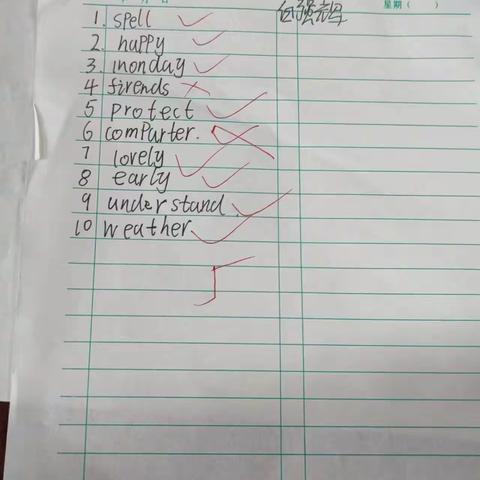 星期（ ）
1. spell
2. happy
3. monday
4 firends
5 protect
6 comparter.
7 lovely
8 early
9 understand.
10 weather